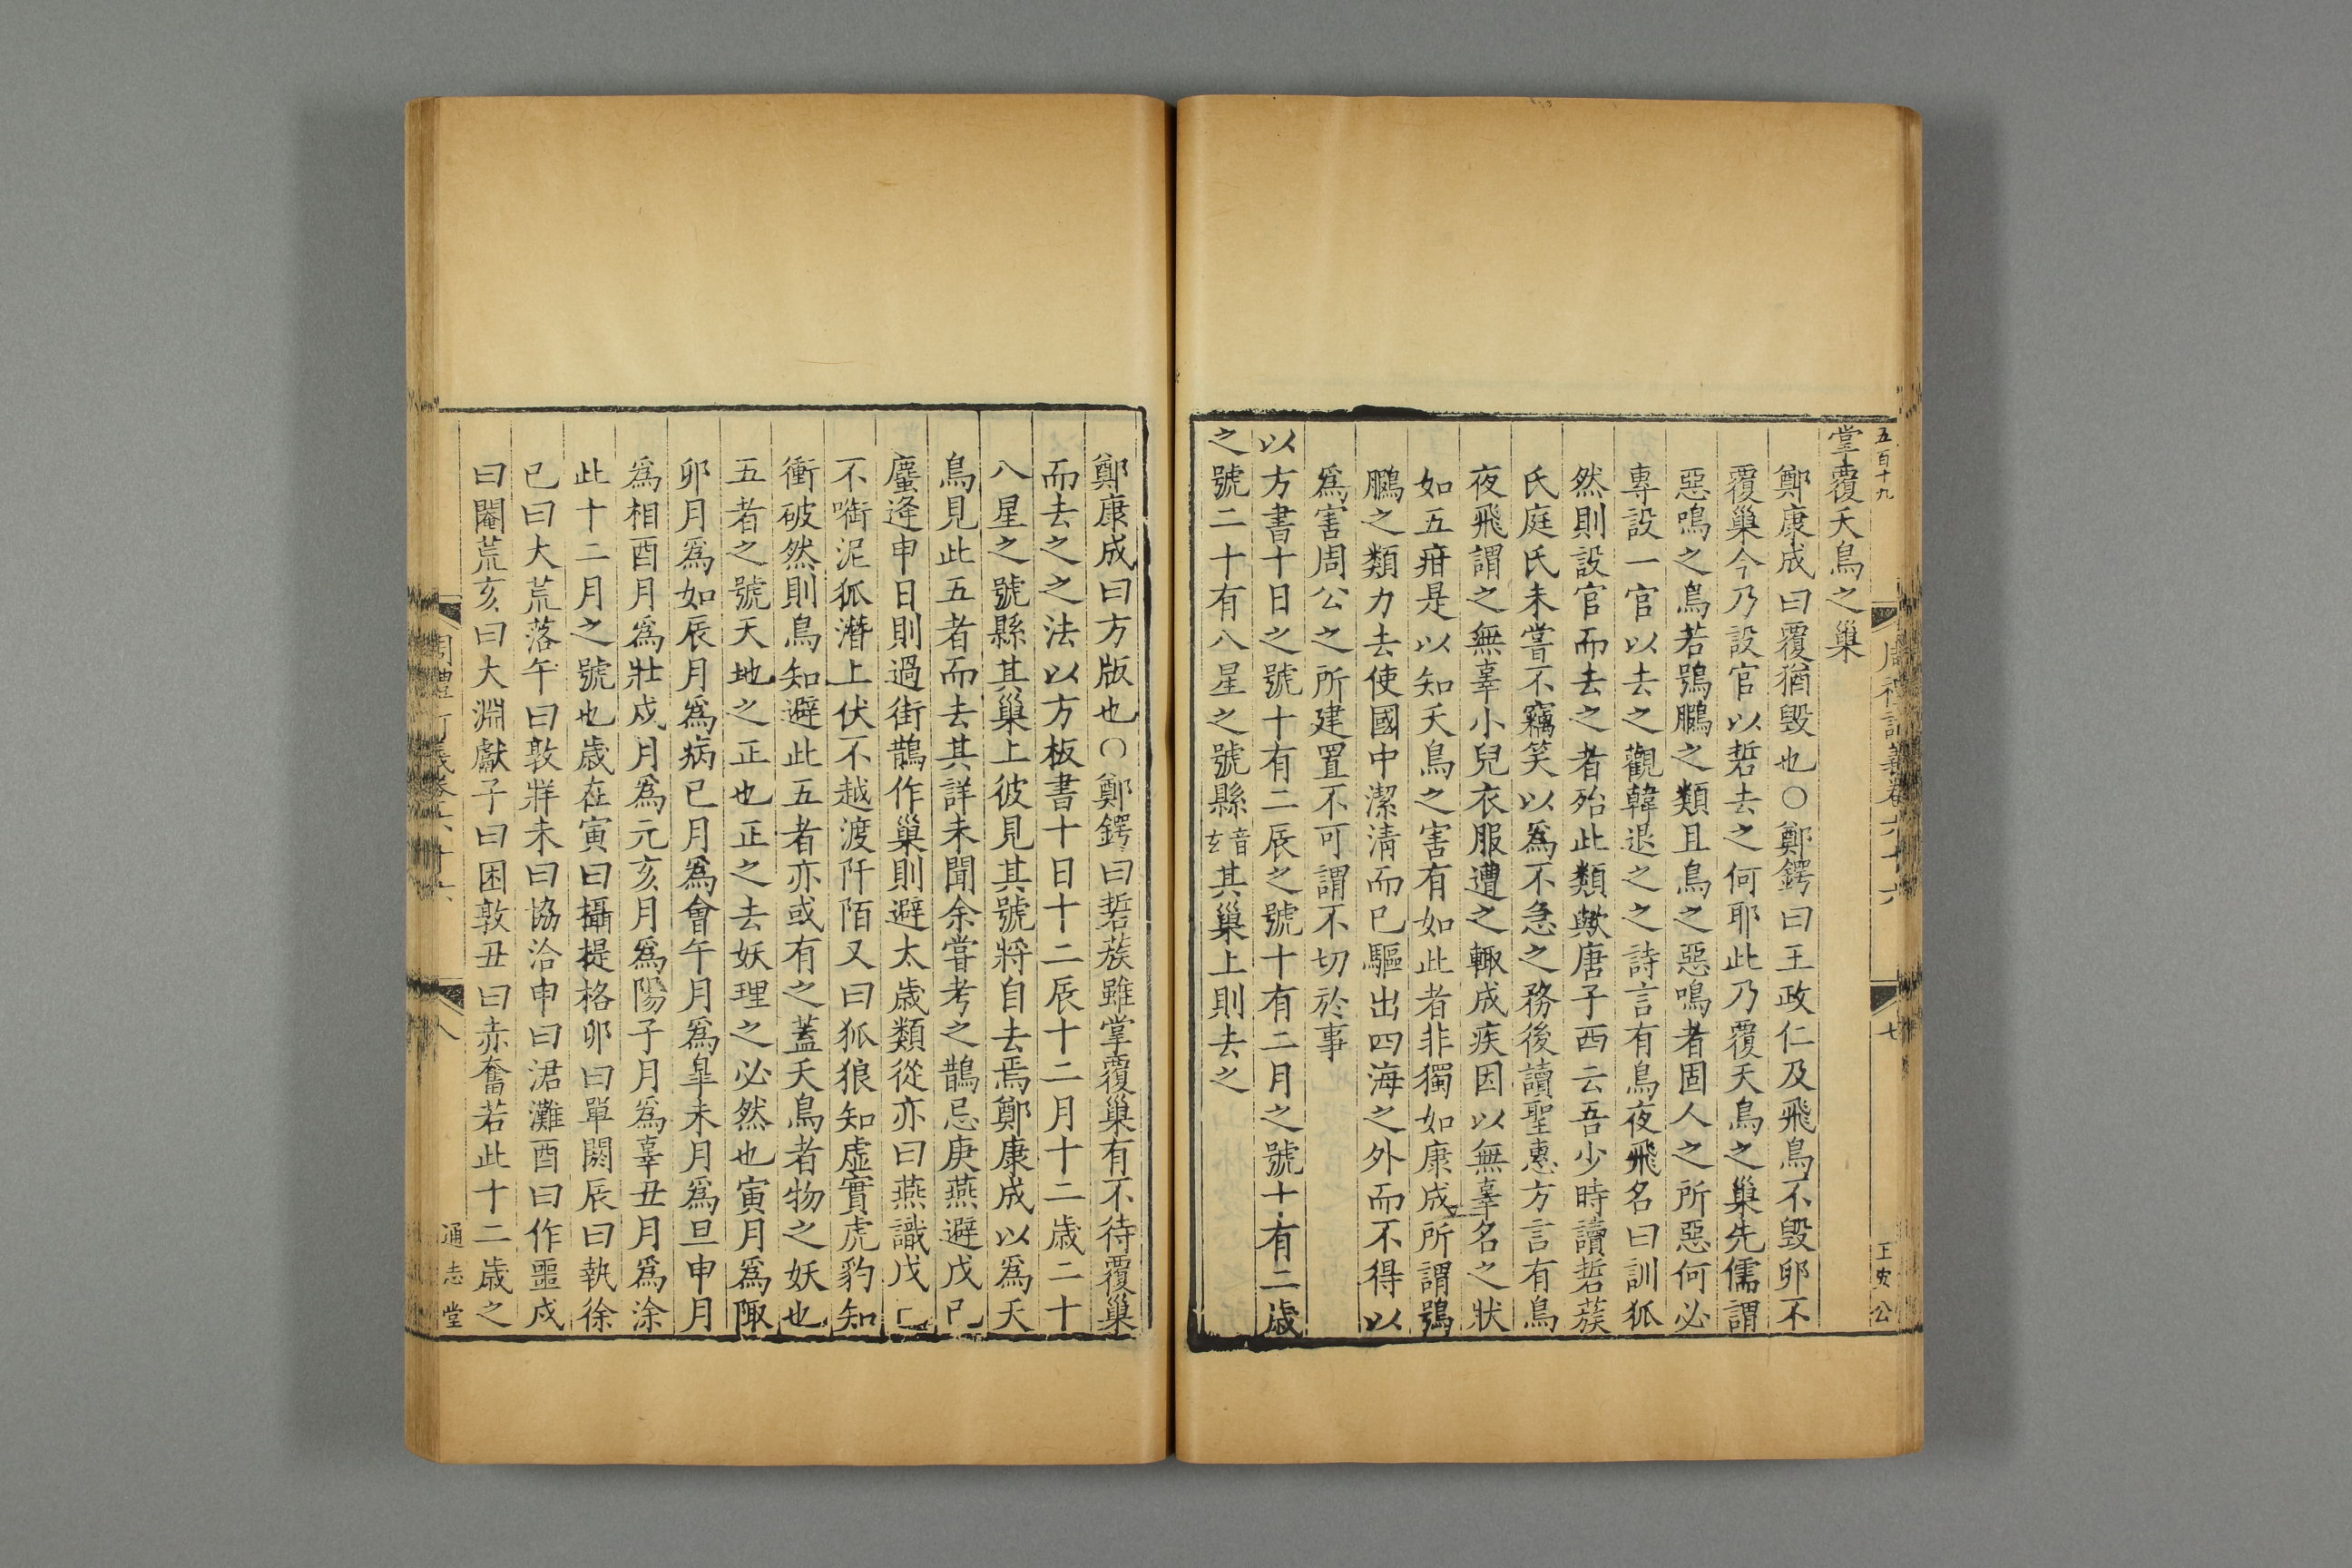 五百十九
周禮訂義卷六十六
七
王史公
掌覆夭鳥之巢
鄭康成曰覆猶毀也○鄭鍔曰王政仁及飛鳥不毀卵不
覆巢今乃設官以硩去之何耶此乃覆夭鳥之巢先儒謂
惡鳴之鳥若鴞鵩之類且鳥之惡鳴者固人之所惡何必
專設一官以去之觀韓退之之詩言有鳥夜飛名曰訓狐
然則設官而去之者殆此類歟唐子西云吾少時讀硩蔟
氏庭氏未嘗不竊笑以爲不急之務後讀聖惠方言有鳥
夜飛謂之無辜小兒衣服遭之輙成疾因以無辜名之狀
如五疳是以知夭鳥之害有如此者非獨如康成所謂鴞
鵩之類力去使國中潔清而已驅出四海之外而不得以
爲害周公之所建置不可謂不切於事
以方書十日之號十有二辰之號十有二月之號十有二歲
之號二十有八星之號縣音玄其巢上則去之
鄭康成曰方版也○鄭鍔曰硩蔟雖掌覆巢有不待覆巢
而去之之法以方板書十日十二辰十二月十二歲二十
八星之號縣其巢上彼見其號將自去焉鄭康成以爲夭
鳥見此五者而去其詳未聞余嘗考之鵲忌庚燕避戊己
䗬逄申日則過街鵲作巢則避太歲類從亦曰燕識戊己
不㗸泥狐潛上伏不越渡阡陌又曰狐狼知虛實虎豹知
衝破然則鳥知避此五者亦或有之蓋夭鳥者物之妖也
五者之號天地之正也正之去妖理之必然也寅月爲陬
卯月爲如辰月爲病巳月爲會午月爲臯未月爲旦申月
爲相酉月爲壯戍月爲元亥月爲陽子月爲辜丑月爲涂
此十二月之號也歲在寅曰攝提格卯曰單閼辰曰執徐
巳曰大荒落午曰敦牂未曰協洽申曰涒灘酉曰作噩戍
曰閹荒亥曰大淵獻子曰困敦丑曰赤奮若此十二歲之
周禮訂義卷六十六
八
通志堂